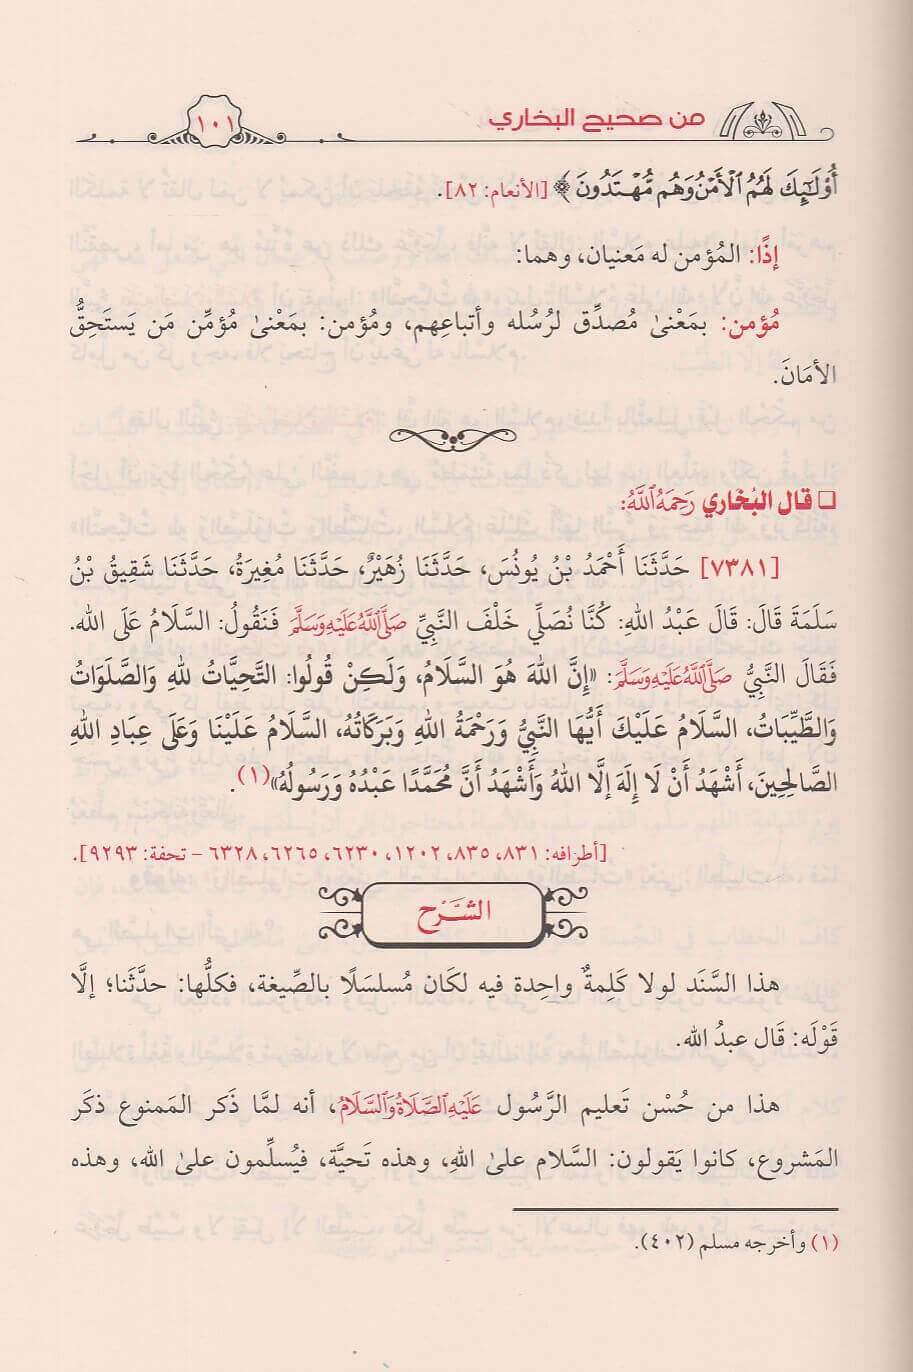 من صحيح البخاري
١٠١
أُوْلَٰٓئِكَ لَهُمُ ٱلۡأَمۡنُ وَهُم مُّهۡتَدُونَ ﴾ [الأنعام: ٨٢].
إذًا: المُؤمن له مَعنيان، وهما:
مُؤمن: بمَعْنىٰ مُصدِّق لرُسُله وأتباعِهم، ومُؤمن: بمَعْنىٰ مُؤمِّن مَن يَستَحِقُّ
الأمَانَ.
❑ قال البُخاري رَحِمَهُ ٱللَّهُ:
[٧٣٨١] حَدَّثَنَا أَحْمَدُ بْنُ يُونُسَ، حَدَّثَنَا زُهَيْرٌ، حَدَّثَنَا مُغِيرَةُ، حَدَّثَنَا شَقِيقُ بْنُ
سَلَمَةَ قَالَ: قَالَ عَبْدُ اللهِ: كُنَّا نُصَلِّي خَلْفَ النَّبِيِّ صَلَّى ٱللَّهُ عَلَيْهِ وَسَلَّمَ فَنَقُولُ: السَّلَامُ عَلَى الله.
فَقَالَ النَّبِيُّ صَلَّى ٱللَّهُ عَلَيْهِ وَسَلَّمَ: «إِنَّ اللهَ هُوَ السَّلَامُ، وَلَكِنْ قُولُوا: التَّحِيَّاتُ للهِ وَالصَّلَوَاتُ
وَالطَّيِّبَاتُ، السَّلَامُ عَلَيْكَ أَيُّهَا النَّبِيُّ وَرَحْمَةُ اللهِ وَبَرَكَاتُهُ، السَّلَامُ عَلَيْنَا وَعَلَى عِبَادِ اللهِ
الصَّالِحِينَ، أَشْهَدُ أَنْ لَا إِلَهَ إلَّا اللهُ وَأَشْهَدُ أَنَّ مُحَمَّدًا عَبْدُهُ وَرَسُولُهُ»(١).
[أطرافه: ٨٣١، ٨٣٥، ١٢٠٢، ٦٢٣٠، ٦٢٦٥، ٦٣٢٨ - تحفة: ٩٢٩٣].
الشَّرْح
هذا السَّنَد لولا كَلِمةٌ واحِدة فيه لكَان مُسلسَلًا بالصِّيغة، فكلُّها: حدَّثَنا؛ إلَّا
قَوْلَه: قَال عبدُ الله.
هذا من حُسْن تَعليم الرَّسُول عَلَيْهِ ٱلصَّلَاةُ وَٱلسَّلَامُ، أنه لمَّا ذَكر المَمنوع ذكَر
المَشروع، كانوا يَقولون: السَّلام علىٰ اللهِ، وهذه تَحيَّة، فيُسلِّمون علىٰ الله، وهذه
(١) وأخرجه مسلم (٤٠٢).